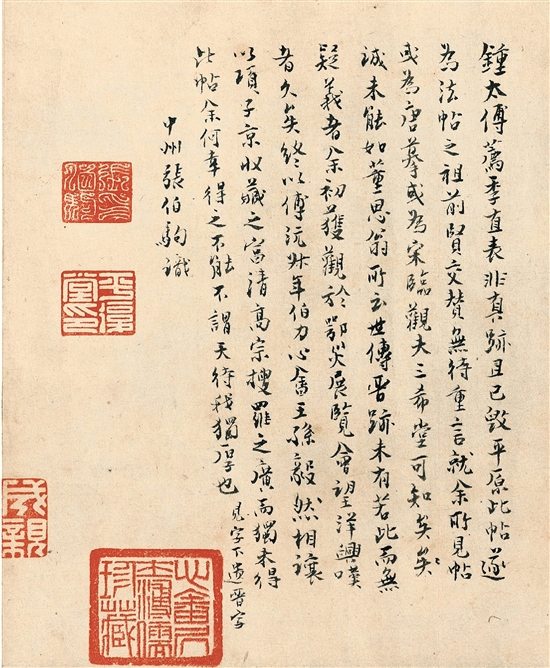 鍾太傅薦季直表非真跡且已毀平原此帖遂
為法帖之祖前賢交贊無待重言就余所見帖
或為唐摹或為宋臨觀夫三希堂可知矣矣
誠未能如董思翁所云世傳晉跡未有若此而無
疑義者余初獲觀於鄂災展覽會望洋興嘆
者久矣終以傅沅叔年伯力心畬王孫毅然相讓
以項子京收藏之富清高宗搜羅之廣而獨未得
此帖余何幸得之不能不謂天待我獨厚也 見字下遺晉字
中州張伯駒識
張印伯駒
平復堂印
成親